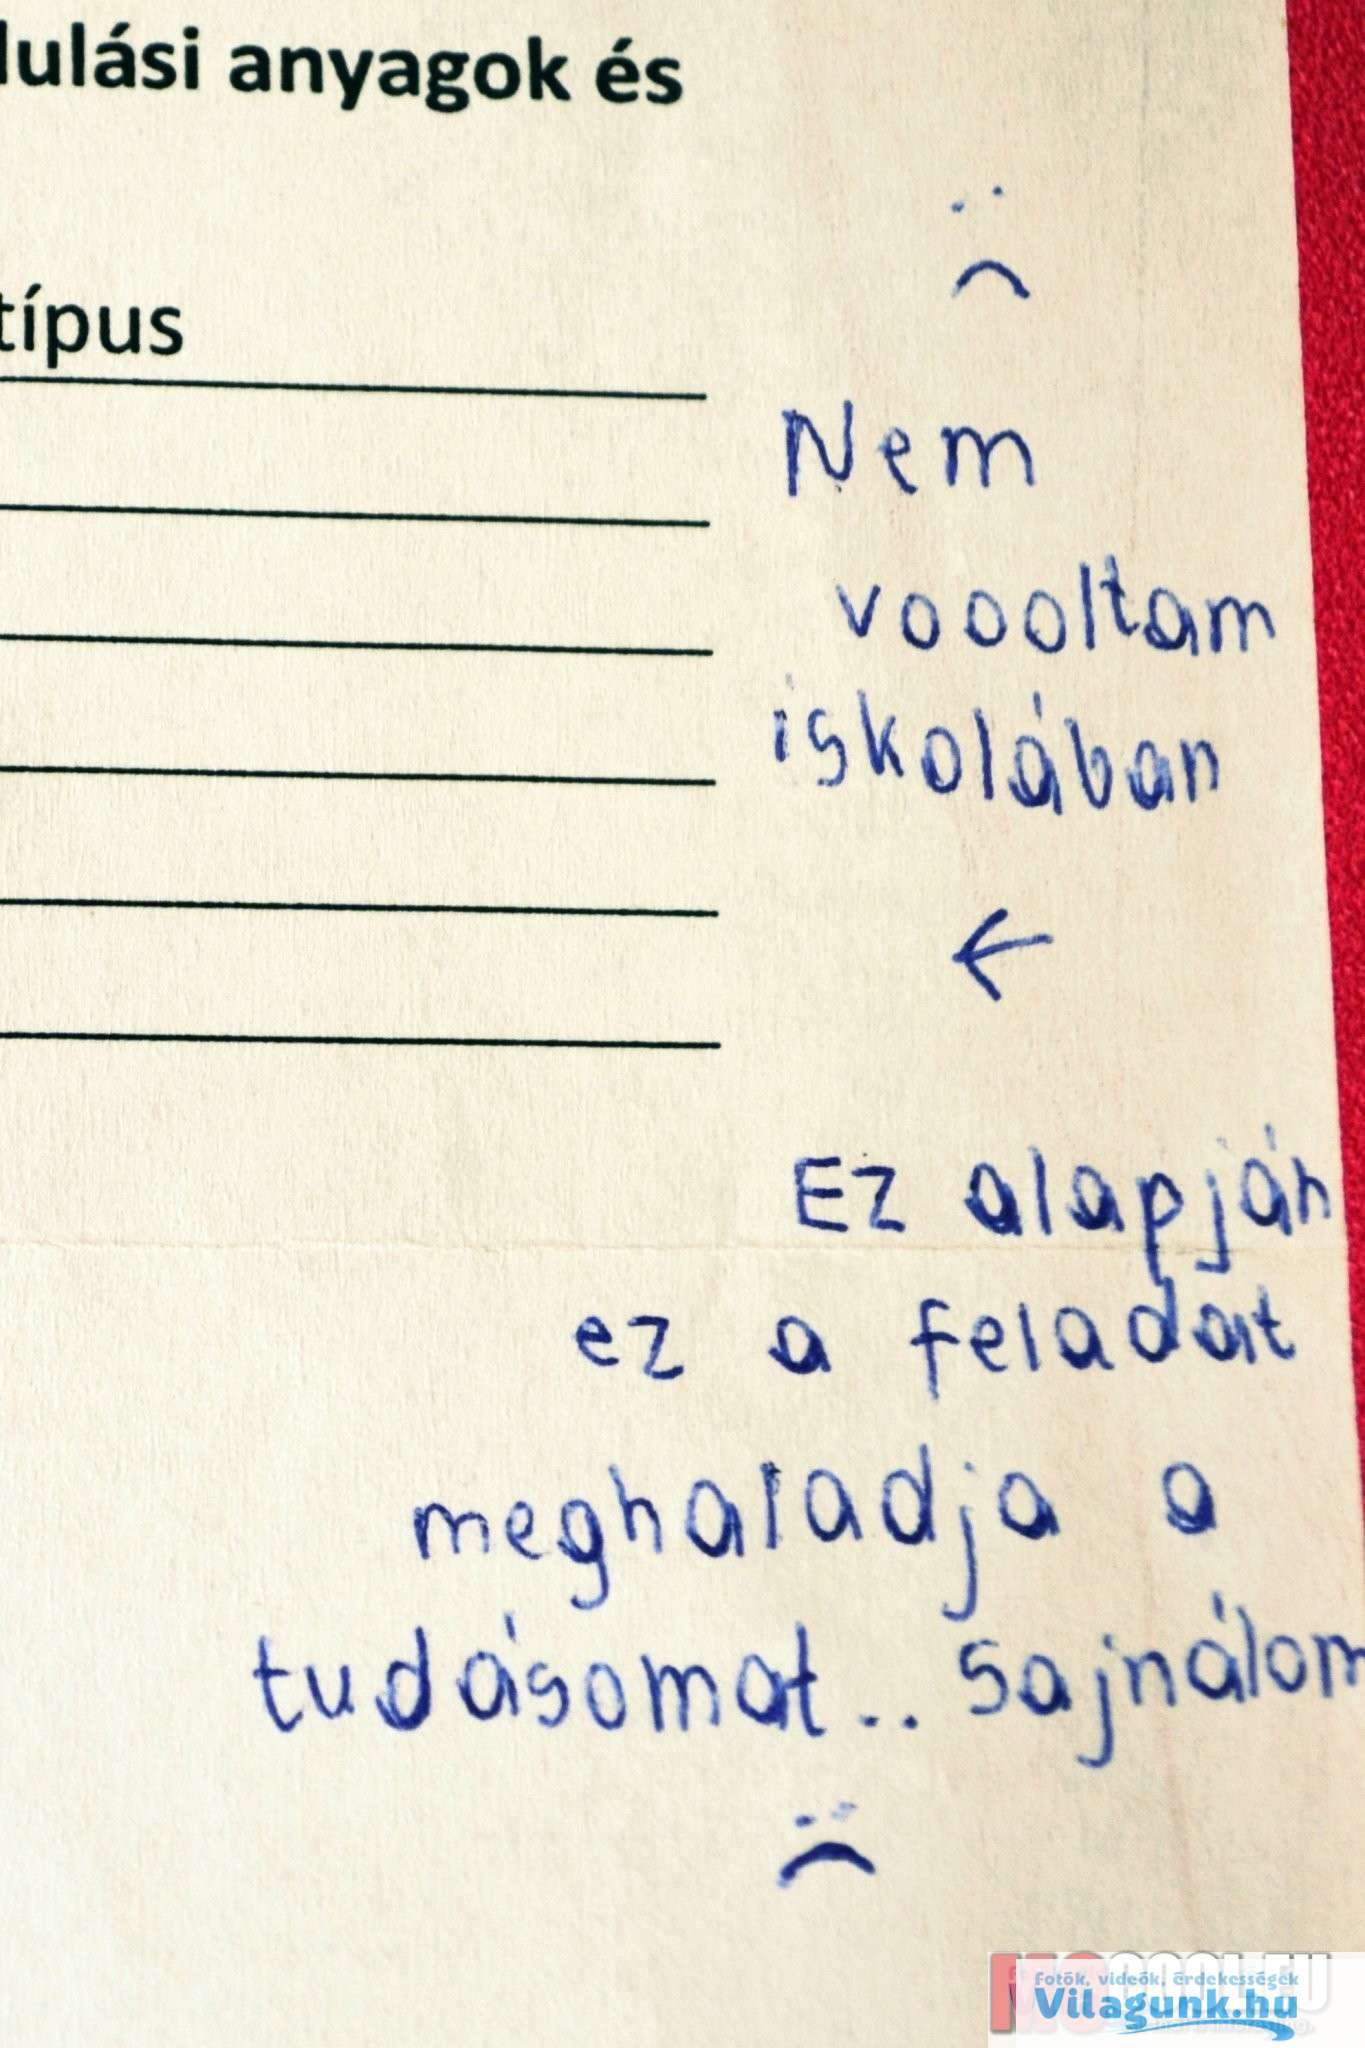 lulási anyagok és
típus
Nem
voooltam
iskolában
←
Ez alapján
ez a feladat
meghaladja a
tudásomat.. sajnálom
fotók, videók, érdekességek
Vilagunk.hu